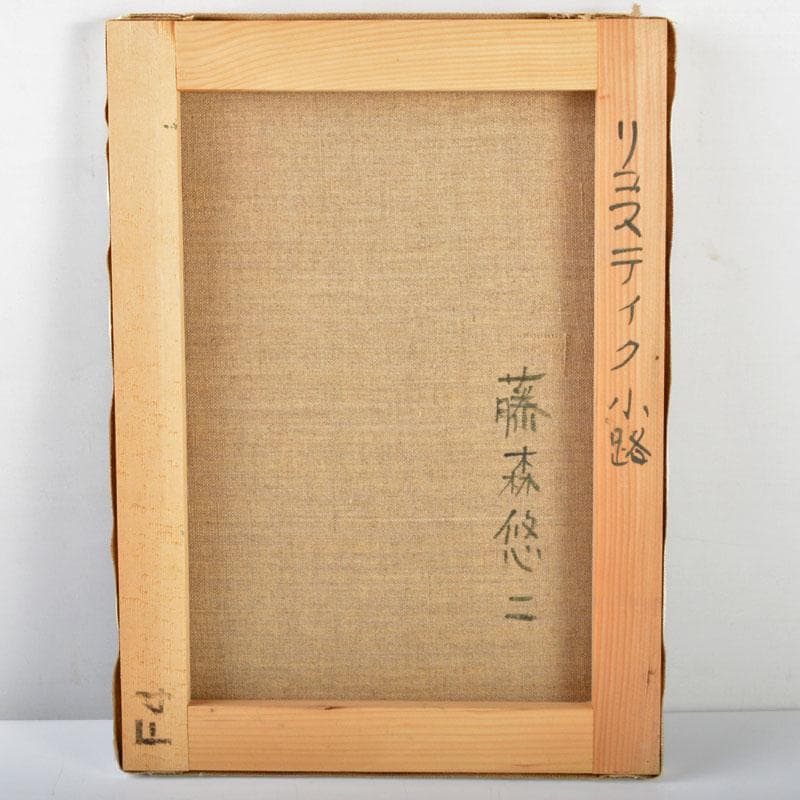 リュスティク小路
藤森悠二
F4